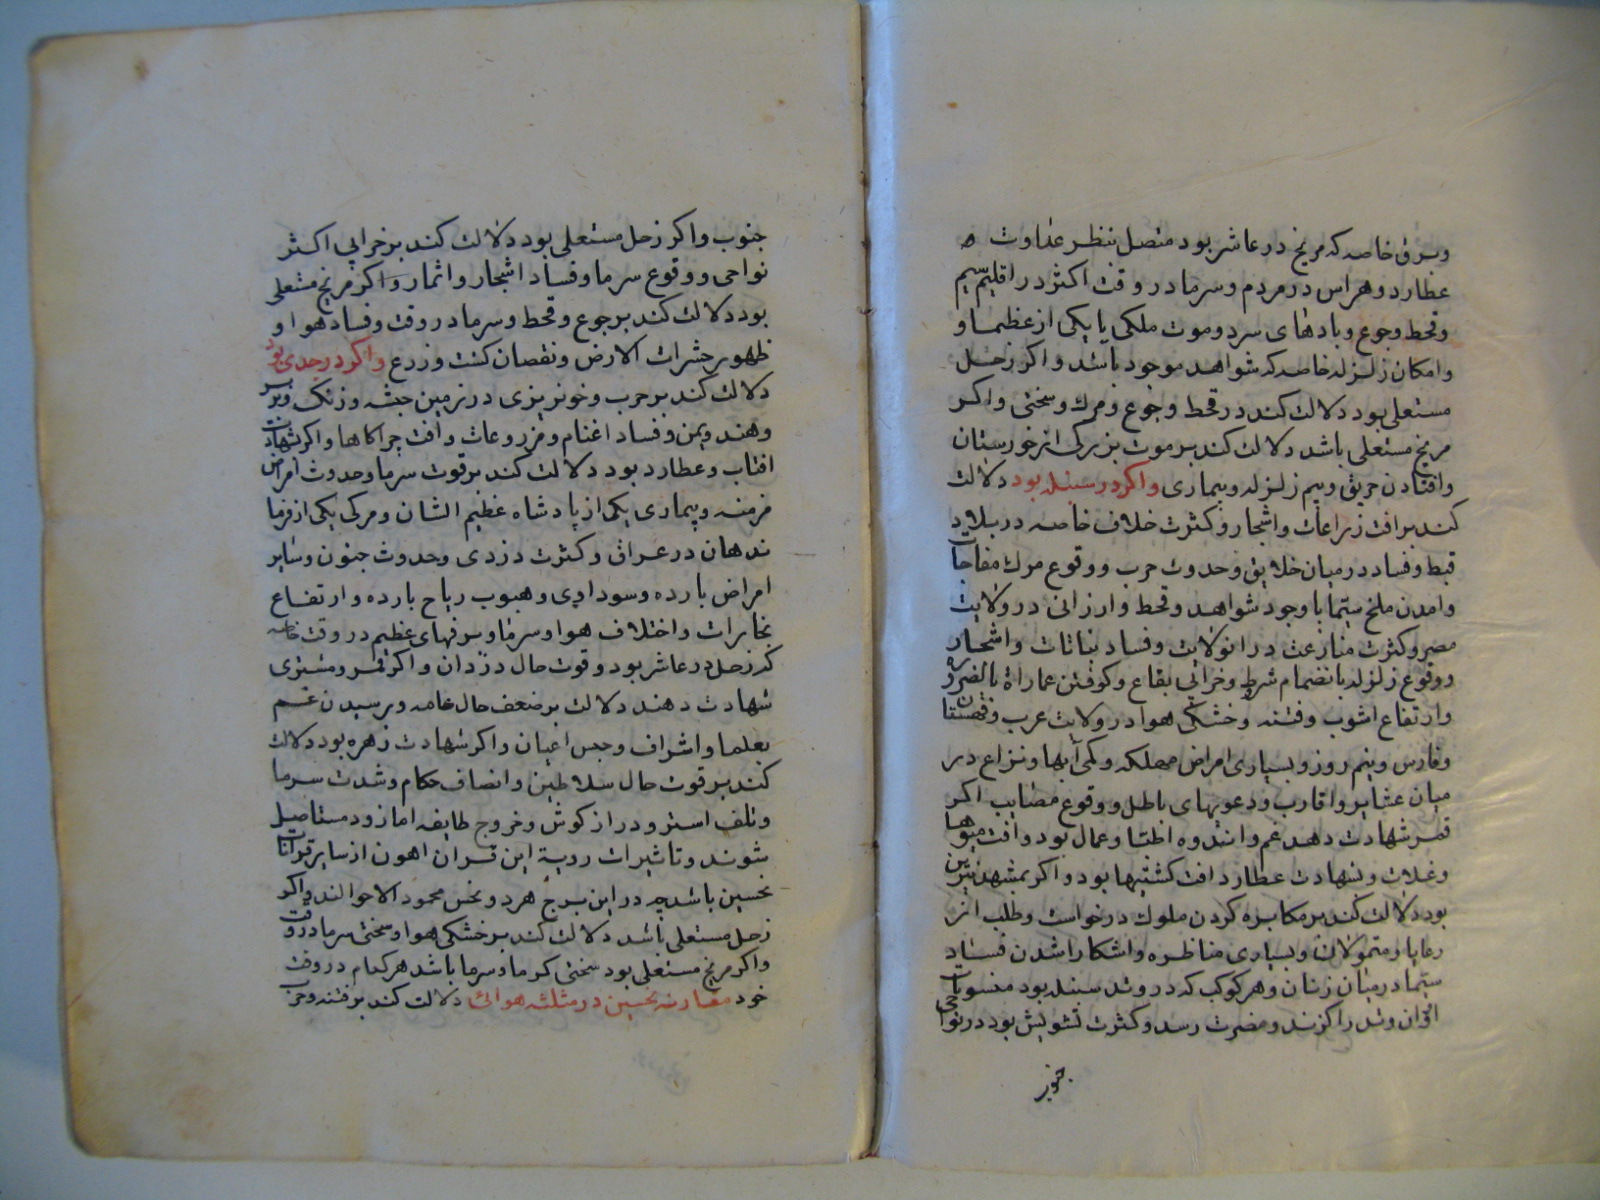 وبرق خاصه که مریخ در عاشر بود متصل بنظر عداوت
عطارد و هراس در مردم و سرما در وقت اکثر در اقلیم سیم
و قحط و جوع و بادهای سرد و موت ملکی یا یکی از عظما و
و امکان زلزله خاصه که شواهد موجود باشد و اکر زحل
مستعلی بود دلالت کند در قحط و جوع و مرک و سختی و اکر
مریخ مستعلی باشد دلالت کند بر موت بزرکی از خورستان
و افتادن حریق و بیم زلزله و بیماری و اکر در سنبله بود دلالت
کند بر افت زراعات و اشجار و کثرت خلاف خاصه در بلاد
قبط و فساد در میان خلایق و حدوث حرب و وقوع مرک مفاجات
و امدن ملخ سیما با وجود شواهد و قحط و ارزانی در ولایت
مصر و کثرت منازعت در انولایت و فساد نباتات و اشجار
و وقوع زلزله بانضمام شرط و خرابی بقاع و کوفتن عماراة بالضروره
و ارتفاع اشوب و فتنه و خشکی هوا در ولایت عرب و قهستان
و فارس و نیم روز و بسیاری امراض مهلکه و کمی آبها و نزاع در
میان عشایر و اقارب و دعویهای باطل و وقوع مصایب اکر
قمر شهادت دهد غم و اندوه اطبا و عمال بود و افت میوها
و غلات و شهادت عطارد افت کشتیها بود و اکر بمشهد نیرین
بود دلالت کند بر مکابره کردن ملوک در خواست و طلب از
رعایا و متمولان و بسیاری مناظره و اشکارا شدن فساد
سیما در میان زنان و هر کوکب که در وتد سنبله بود منسوبات
افوان وتد را کزند و مضرت رسد و کثرت تشویش بود در نواحی
جنوب
جنوب و اکر زحل مستعلی بود دلالت کند بر خرابی اکثر
نواحی و وقوع سرما و فساد اشجار و اثمار و اکر مریخ مستعلی
بود دلالت کند بر جوع و قحط و سرما در وقت و فساد هوا و
ظهور حشرات الارض و نقصان کشت و زرع و اکر در جدی بود
دلالت کند بر حرب و خونریزی در زمین حبشه و زنک و بربر
و هند و یمن و فساد اغنام و مزروعات و افت چراکاها و اکر شهادت
افتاب و عطارد بود دلالت کند بر قوت سرما و حدوث امراض
مزمنه و بیماری یکی از پادشاه عظیم الشان و مرک یکی از فرما
ندهان در عراق و کثرت دزدی و حدوث جنون و سایر
امراض بارده و سوداوی و هبوب ریاح بارده و ارتفاع
بخارات و اختلاف هوا و سرما و برفهای عظیم در وقت خاصه
که زحل در عاشر بود و قوت حال دزدان و اکر قمر و مشتری
شهادت دهند دلالت بر ضعف حال عامه و برسیدن غم
بعلما و اشراف و حبس اعیان و اکر شهادت زهره بود دلالت
کند بر قوت حال سلاطین و انصاف حکام و شدت سرما
و تلف استر و دراز کوش و خروج طایفه اما زود مستاصل
شوند و تاثیرات ردیة این قران اهون از سایر قرانات
نحسین باشد چه در این برج هر دو نحس محمود الاحوالند و اکر
زحل مستعلی باشد دلالت کند بر خشکی هوا و سختی سرما در وقت
و اکر مریخ مستعلی بود سختی کرما و سرما باشد هر کدام در وقت
خود مقارنه نحسین در مثلثه هوائی دلالت کند بر فتنه و حرب